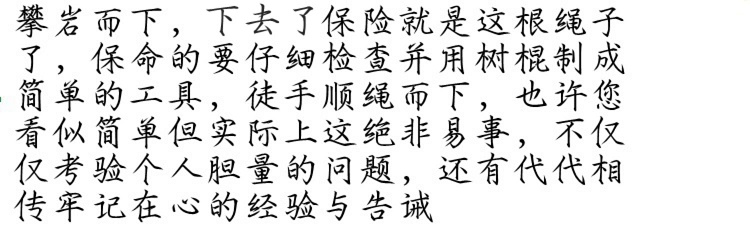 攀岩而下，下去了保险就是这根绳子
了，保命的要仔细检查并用树棍制成
简单的工具，徒手顺绳而下，也许您
看似简单但实际上这绝非易事，不仅
仅考验个人胆量的问题，还有代代相
传牢记在心的经验与告诫